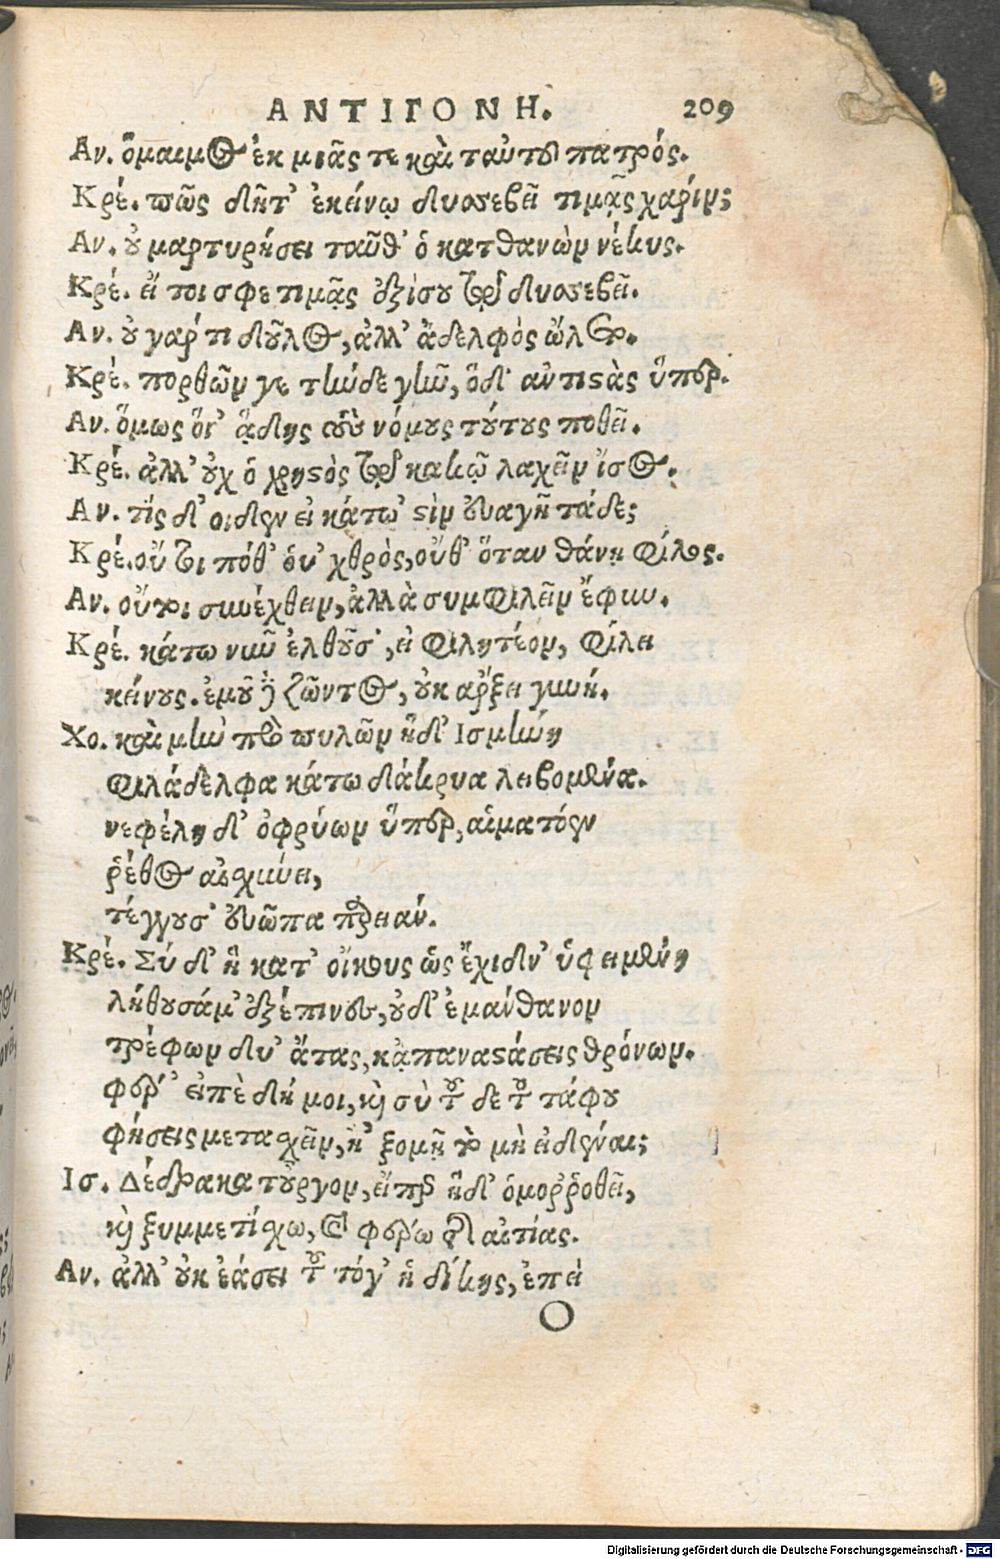 ΑΝΤΙΓΟΝΗ. 209
Αν. ὅμαιμος ἐκ μιᾶς τε καὶ ταὐτοῦ πατρός.
Κρέ. πῶς δῆτ' ἐκείνῳ δυσσεβεῖ τιμᾷς χάριν;
Αν. οὐ μαρτυρήσει ταῦθ' ὁ κατθανὼν νέκυς.
Κρέ. εἴ τοι σφε τιμᾷς ἐξίσου τῷ δυσσεβεῖ.
Αν. οὐ γάρ τι δοῦλος, ἀλλ' ἀδελφὸς ὤλετο.
Κρέ. πορθῶν γε τήνδε γῆν, ὅδ' ἀντιστὰς ὕπερ.
Αν. ὅμως ὅγ' ᾅδης τοὺς νόμους τούτους ποθεῖ.
Κρέ. ἀλλ' οὐχ ὁ χρηστὸς τῷ κακῷ λαχεῖν ἴσος.
Αν. τίς δ' οἶδεν εἰ κάτω' στὶν εὐαγῆ τάδε;
Κρέ. οὔτοι πόθ' οὑ' χθρὸς, οὔθ' ὅταν θάνῃ φίλος.
Αν. οὔτοι συνέχθειν, ἀλλὰ συμφιλεῖν ἔφυν.
Κρέ. κάτω νῦν ἐλθοῦσ', εἰ φιλητέον, φίλει
κείνους. ἐμοῦ δὲ ζῶντος, οὐκ ἄρξει γυνή.
Χο. καὶ μὴν πρὸ πυλῶν ἥδ' Ισμήνη
φιλάδελφα κάτω δάκρυα λειβομένα.
νεφέλη δ' ὀφρύων ὕπερ, αἱματόεν
ῥέθος αἰσχύνει,
τέγγουσ' εὐῶπα παρειάν.
Κρέ. Σύ δ' ἣ κατ' οἴκους ὡς ἔχιδν' ὑφειμένη
λήθουσάμ' ἐξέπινες, οὐδ' ἐμάνθανον
τρέφων δύ' ἄτας, κᾀπαναστάσεις θρόνων.
φέρ' εἰπὲ δή μοι, καὶ σὺ τοῦδε τοῦ τάφου
φήσεις μετασχεῖν, ἢ' ξομῇ τὸ μὴ εἰδέναι;
Ισ. Δέδρακα τοὖργον, εἴπερ ἥδ' ὁμοῤῥοθεῖ,
καὶ ξυμμετίσχω, καὶ φέρω τῆς αἰτίας.
Αν. ἀλλ' οὐκ ἐάσει τοῦτόγ' ἡ δίκης, ἐπεὶ
O
Digitalisierung gefördert durch die Deutsche Forschungsgemeinschaft - DFG